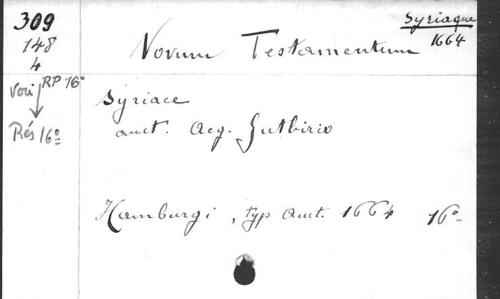 309
148
4
Voir RP 16°
Rés 16°
Syriaque
1664
Novum Testamentum
Syriace
auct. Aeg. Gutbirio
Hamburgi, typ. Auct. 1664 16°